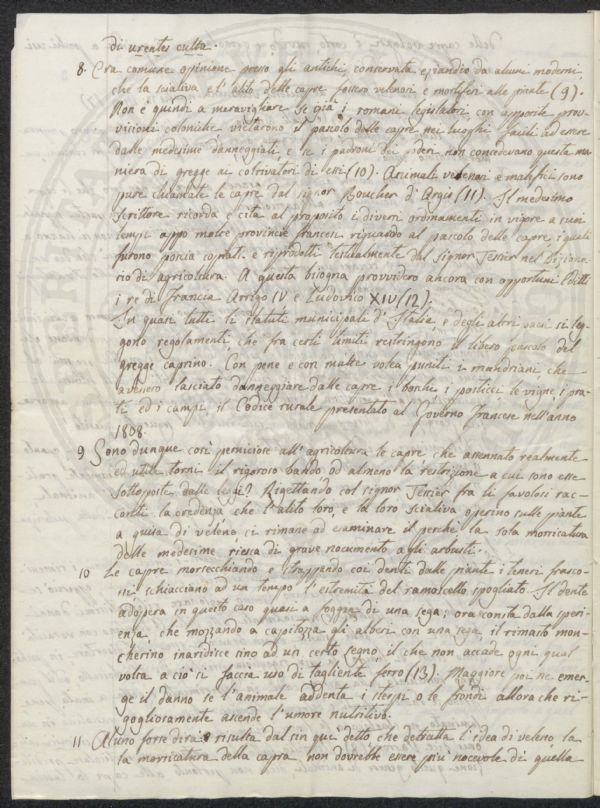 di urentes culta.
8. Era comune opinione presso gli antichi conservata eziandio da alcuni moderni,
che la sciativa e l'alito delle capre fossero velenosi e mortiferi alle piante (9).
Non è quindi a meravigliare se già i romani legislatori con apposite prov-
visioni coloniche vietarono il pascolo delle capre nei luoghi facili ad essere
dalle medesime danneggiati e se i padroni dei poderi non concedevano questa ma-
niera di gregge ai coltivatori di essi (10). Animali velenosi e malefici sono
pure chiamate le capre dal signor Boucher d'Argis (11). Il medesimo
Scrittore ricorda e cita al proposito i diversi ordinamenti in vigore a suoi
tempi appo molte provincie francesi riguardo al pascolo delle capre, i quali
furono poscia copiati e riprodotti testualmente dal signor Tessier nel Diziona-
rio di agricoltura. A questa bisogna provvidero ancora con opportuni Editti
i re di Francia Arrigo IV e Ludovico XIV (12).
In quasi tutti li statuti municipali d'Italia e degli altri paesi si leg-
gono regolamenti, che fra certi limiti restringono il libero pascolo del
gregge caprino. Con pene e con multe volea puniti i mandriani che
avessero lasciato danneggiare dalle capre i boschi, i posticci le vigne, i pra-
ti ed i campi il Codice rurale presentato al Governo francese nell'anno
1808.
9 Sono dunque così perniciose all'agricoltura le capre che assennato realmente
ed utile torni il rigoroso bando od almeno la restrizione a cui sono esse
sottoposte dalle leggi? Rigettando col signor Tessier fra li favolosi rac-
conti la credenza che l'alito loro, e la loro sciativa operino sulle piante
a guisa di veleno ci rimane ad esaminare il perchè la sola morsicatura
delle medesime riesca di grave nocumento agli arbusti.
10 Le capre morsecchiando e strappando coi denti dalle piante i teneri frasco-
ni schiacciano ad un tempo l'estremità del ramoscello spogliato. Il dente
adopera in questo caso quasi a foggia di una sega; ora consta dalla speri-
enza, che mozzando a capitozza gli alberi con una sega, il rimasto mon-
cherino inaridisce sino ad un certo segno il che non accade ogni qual
volta a ciò si faccia uso di tagliente ferro (13). Maggiore poi ne emer-
ge il danno se l'animale addenta i sterpi o le frondi allora che ri-
gogliosamente ascende l'umore nutritivo.
11 Aluno forse dirà risulta dal sin qui detto che detratta l'idea di veleno la
la morsicatura della capra non dovrebbe essere più nocevole di quella